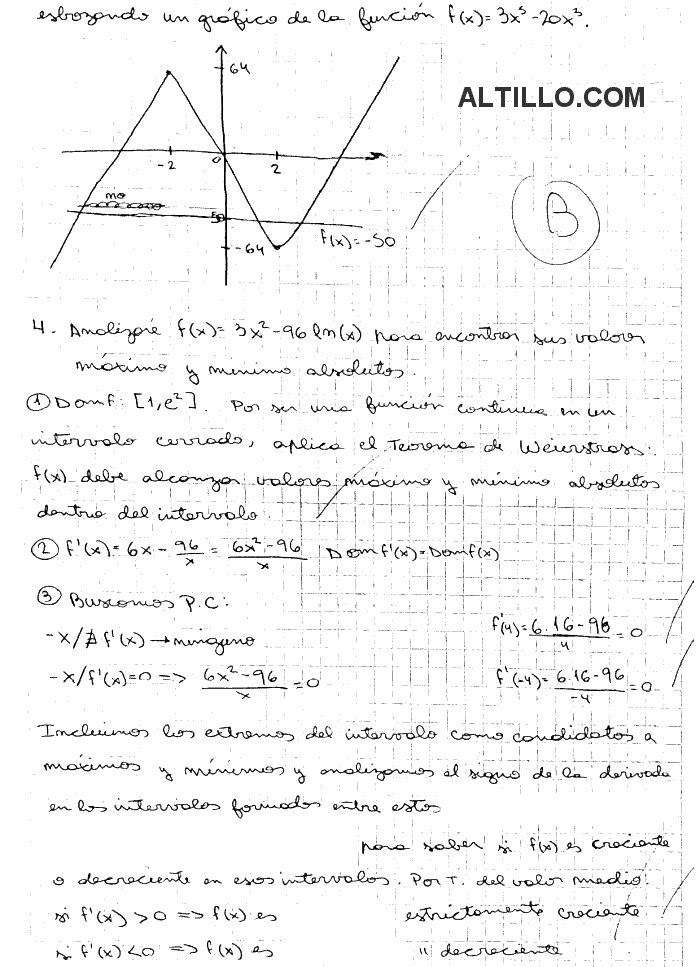 esbozando un gráfico de la función f(x)=3x⁵-20x³.
64
ALTILLO.COM
-2
0
2
mo
50
B
-64
f(x)=-50
4. Analizaré f(x)= 3x²-96 ln(x) para encontrar sus valores
máximo y mínimo absolutos.
① Dom f: [1,e²]. Por ser una función continua en un
intervalo cerrado, aplica el Teorema de Weierstrass:
f(x) debe alcanzar valores máximo y mínimo absolutos
dentro del intervalo.
② f'(x)= 6x - 96/x = 6x²-96/x | Dom f'(x)=Dom f(x)
③ Buscamos P.C:
-x/∄ f'(x) → ninguno
f'(4)= 6.16-96/4 = 0
-x/f'(x)=0 => 6x²-96/x =0
f'(-4)= 6.16-96/-4 = 0
Incluimos los extremos del intervalo como candidatos a
máximos y mínimos y analizamos el signo de la derivada
en los intervalos formados entre estos
para saber si f(x) es creciente
o decreciente en esos intervalos. Por T. del valor medio:
si f'(x) >0 => f(x) es estrictamente creciente
si f'(x) <0 => f(x) es " decreciente